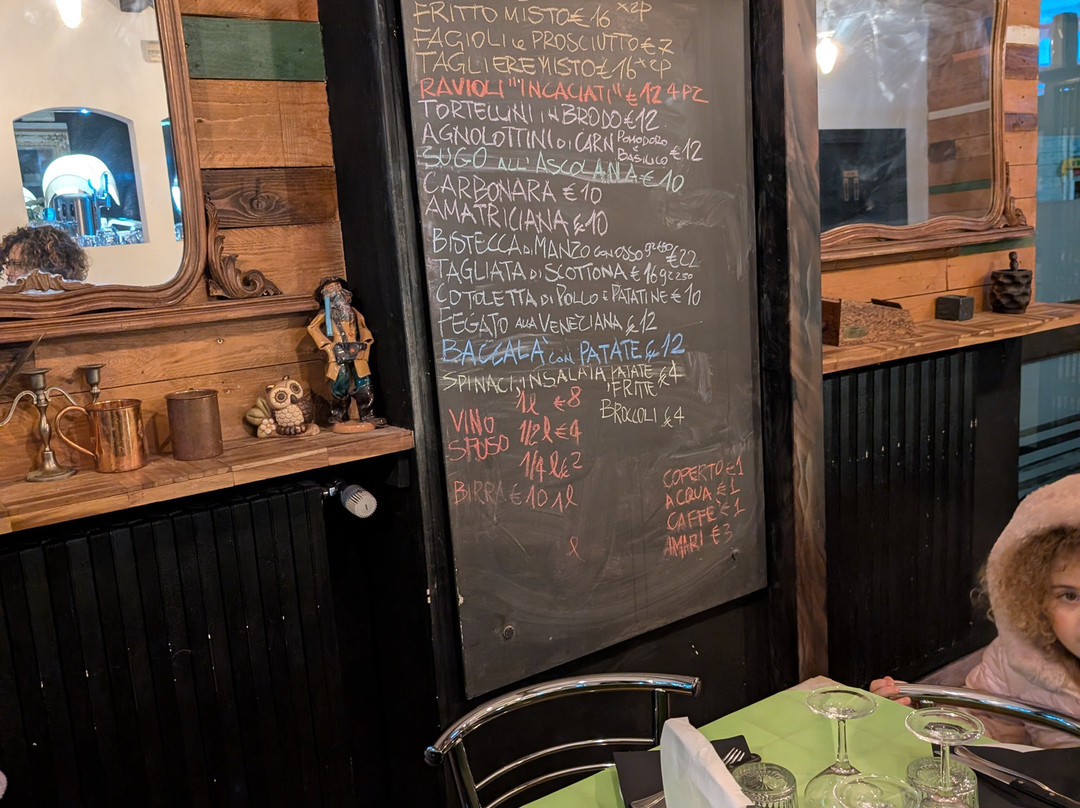 FRITTO MISTO €16 x2p
FAGIOLI e PROSCIUTTO €7
TAGLIERE MISTO £16 x2p
RAVIOLI "INCACIATI" €12 4 PZ
TORTELLINI IN BRODO €12
AGNOLOTTINI DI CARN POMODORO e BASILICO €12
SUGO ALL'ASCOLANA €10
CARBONARA €10
AMATRICIANA €10
BISTECCA DI MANZO CON OSSO gr450 €22
TAGLIATA DI SCOTTONA €16 gr250
COTOLETTA DI POLLO e PATATINE €10
FEGATO ALLA VENEZIANA €12
BACCALÀ CON PATATE €12
SPINACI, INSALATA PATATE FRITTE €4
BROCCOLI €4
VINO SFUSO
1l €8
1/2 l €4
1/4 l €2
BIRRA €10 1l
COPERTO €1
ACQUA €1
CAFFE' €1
AMARI €3